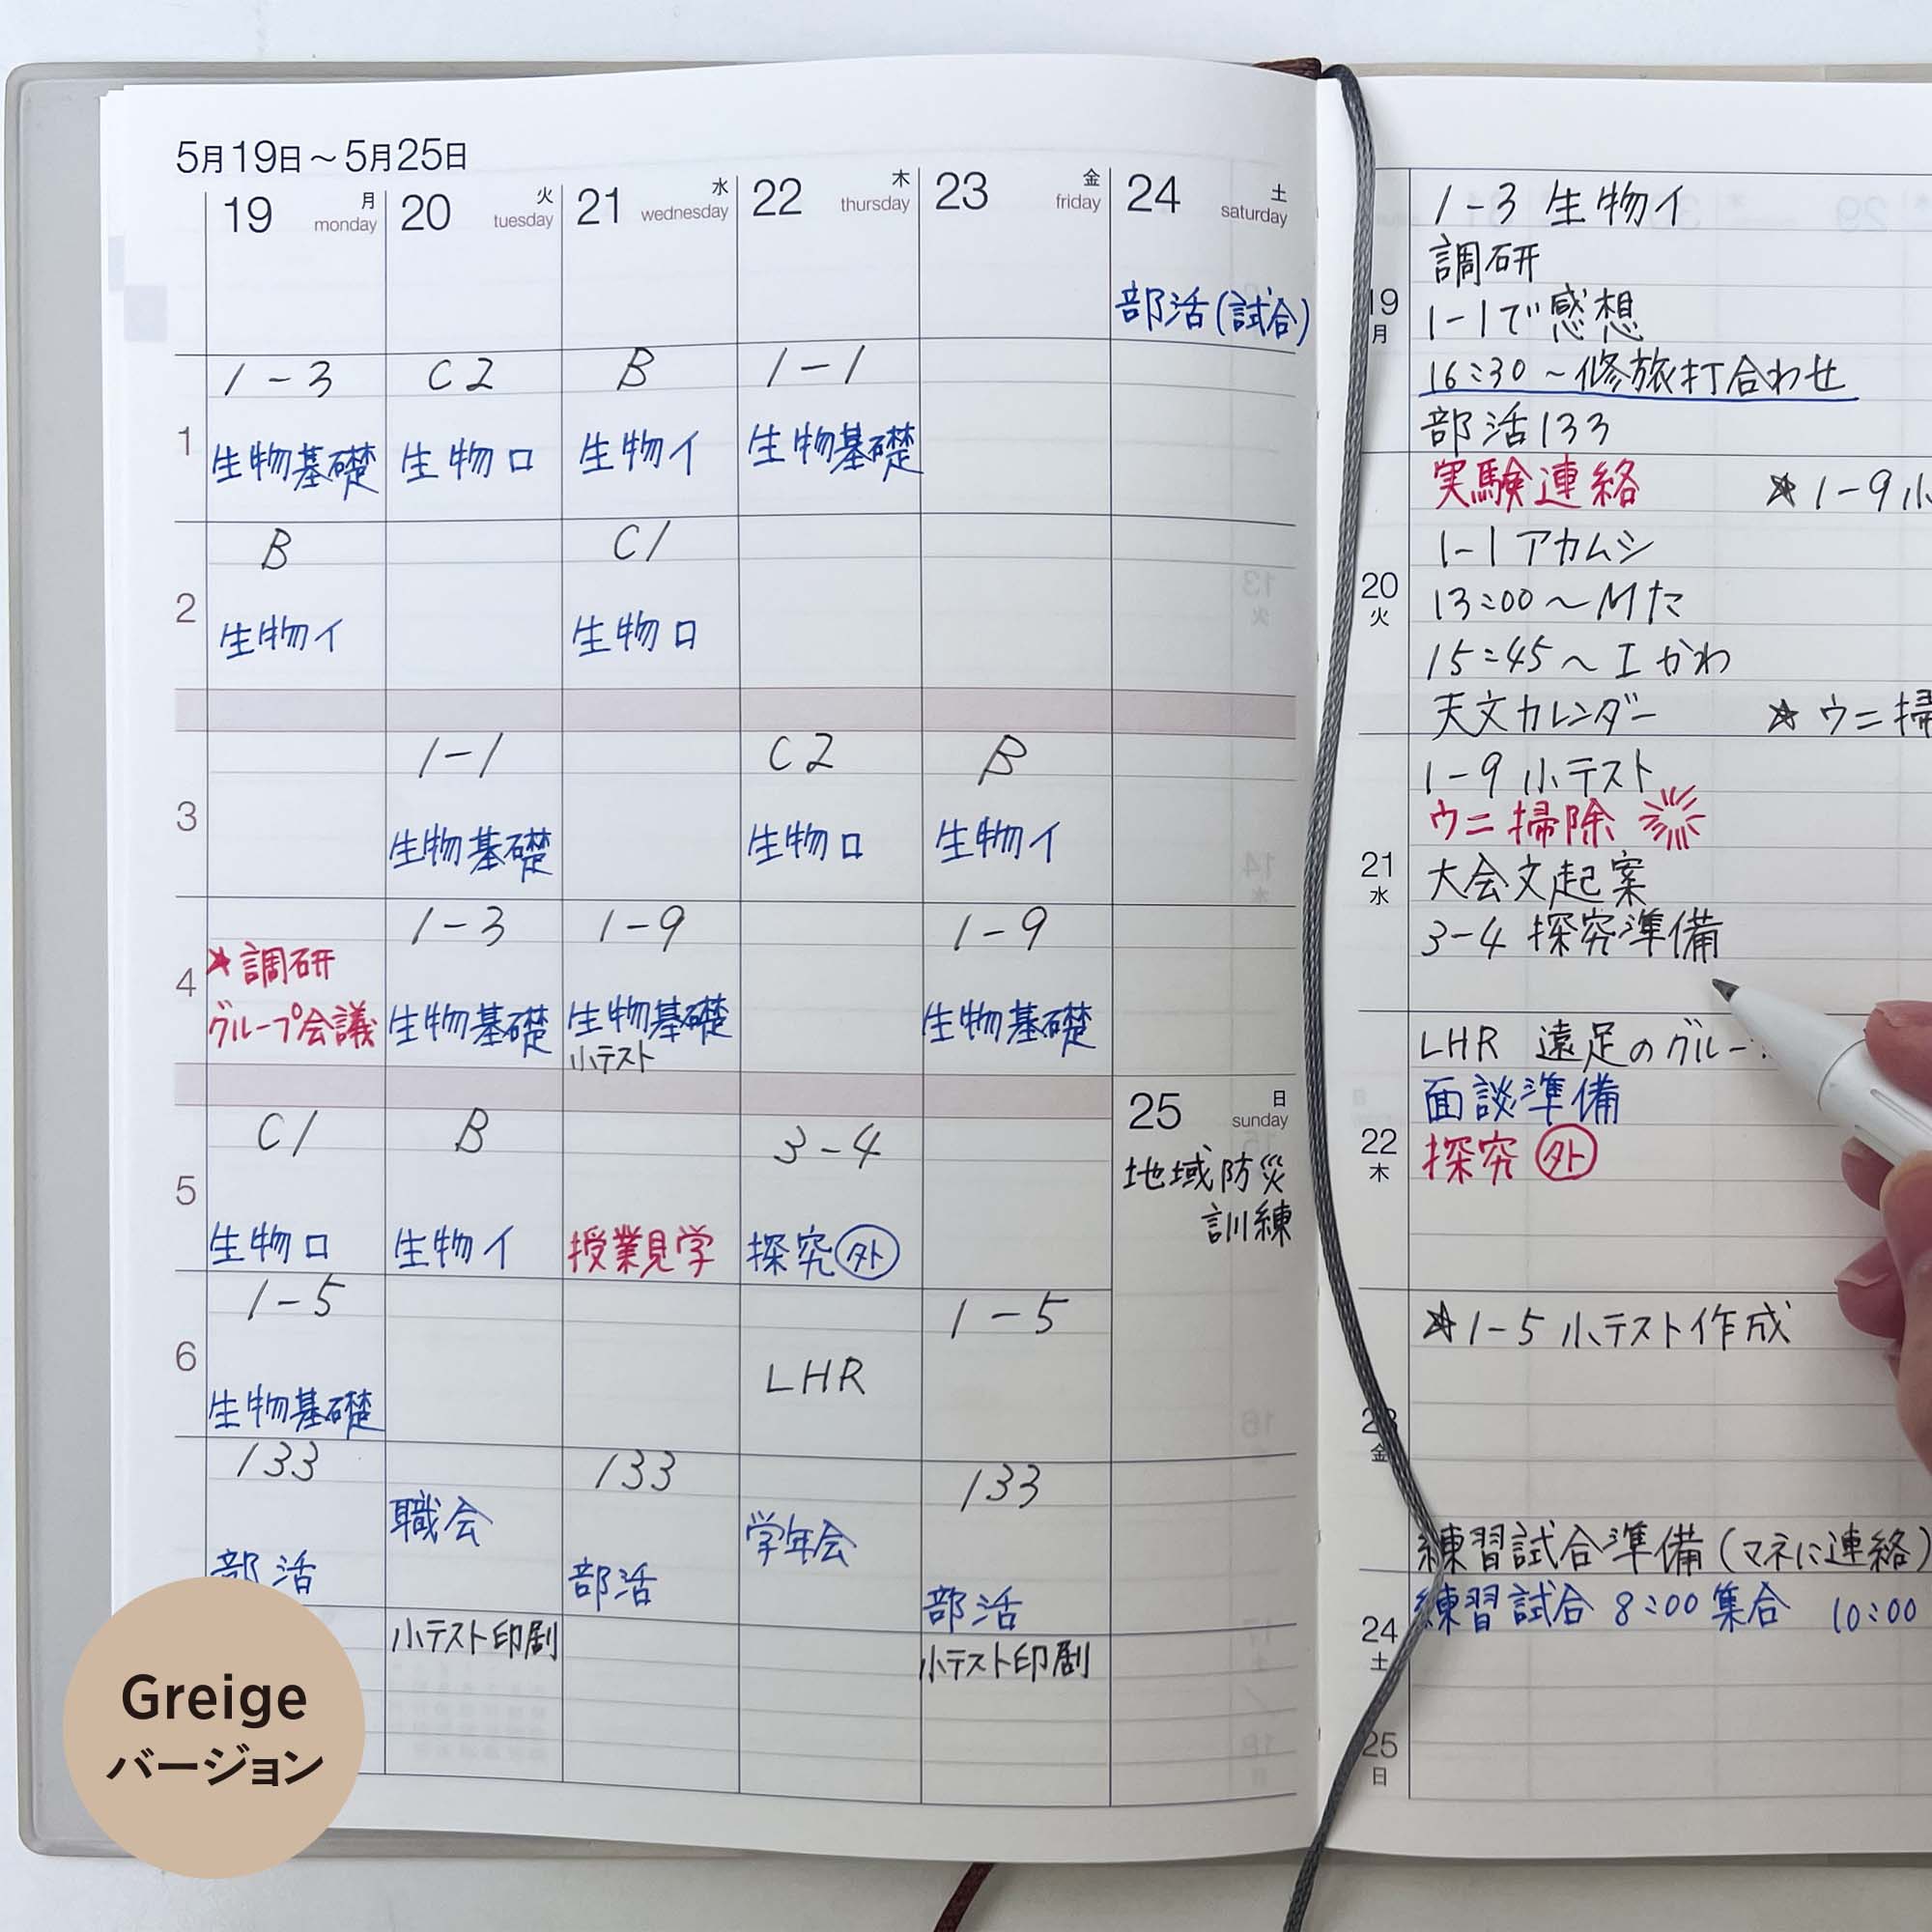 5月19日～5月25日
19 月 monday
20 火 tuesday
21 水 wednesday
22 木 thursday
23 金 friday
24 土 saturday
部活(試合)
1
1-3
生物基礎
C2
生物ロ
B
生物イ
1-1
生物基礎
2
B
生物イ
C1
生物ロ
3
1-1
生物基礎
C2
生物ロ
B
生物イ
4
★調研
グループ会議
1-3
生物基礎
1-9
生物基礎
小テスト
1-9
生物基礎
25 日 sunday
地域防災
訓練
5
C1
生物ロ
B
生物イ
授業見学
3-4
探究外
6
1-5
生物基礎
LHR
1-5
133
部活
職会
133
部活
学年会
133
部活
小テスト印刷
小テスト印刷
19
月
1-3 生物イ
調研
1-1で感想
16:30～修旅打合わせ
部活133
20
火
実験連絡 ★1-9小
1-1 アカムシ
13:00～Mた
15:45～Iかわ
天文カレンダー ★ウニ掃
21
水
1-9 小テスト
ウニ掃除
大会文起案
3-4 探究準備
22
木
LHR 遠足のグルー
面談準備
探究外
23
金
★1-5 小テスト作成
練習試合準備(マネに連絡)
24
土
練習試合 8:00集合 10:00
25
日
Greige
バージョン